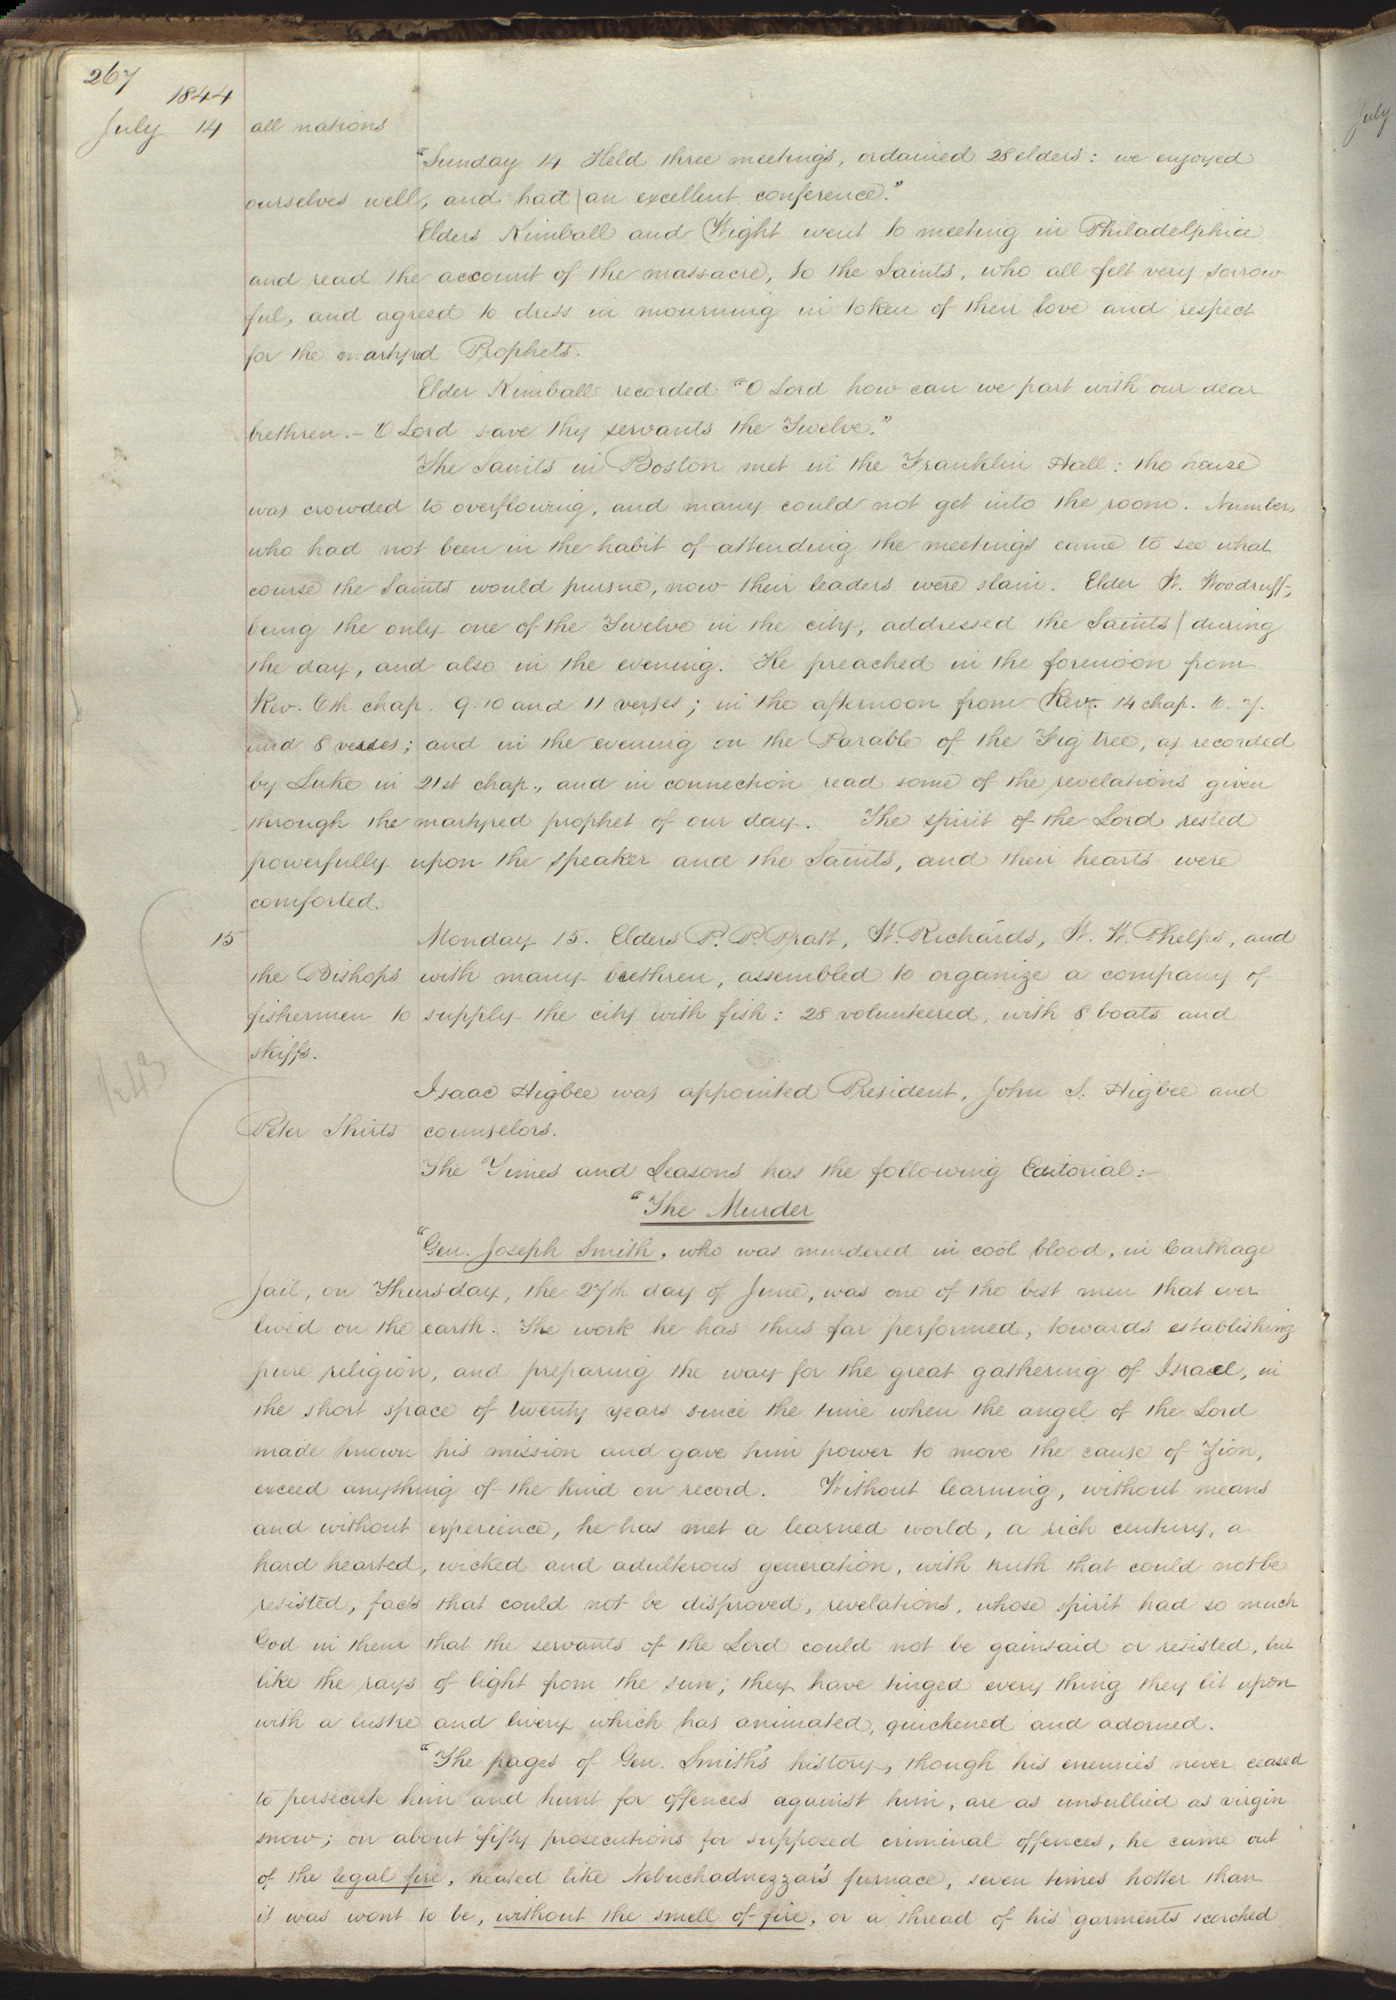 267
1844
July 14 all nations
"Sunday 14 Held three meetings, ordained 28 elders: we enjoyed
ourselves well, and had an excellent conference."
Elders Kimball and Wight went to meeting in Philadelphia
and read the account of the massacre, to the Saints, who all felt very sorrow
ful, and agreed to dress in mourning in token of their love and respect
for the martyred Prophets.
Elder Kimball recorded "O Lord how can we part with our dear
brethren. – O Lord save thy servants the Twelve."
The Saints in Boston met in the Franklin Hall: the house
was crowded to overflowing, and many could not get into the room. Numbers
who had not been in the habit of attending the meetings came to see what
course the Saints would pursue, now their leaders were slain. Elder W. Woodruff,
being the only one of the Twelve in the city, addressed the Saints during
the day, and also in the evening. He preached in the forenoon from
Rev. 6th chap. 9. 10 and 11 verses; in the afternoon from Rev. 14 chap. 6. 7.
and 8 verses; and in the evening on the Parable of the Fig tree, as recorded
by Luke in 21st chap., and in connection read some of the revelations given
through the martyred prophet of our day. The spirit of the Lord rested
powerfully upon the speaker and the Saints, and their hearts were
comforted.
15 Monday 15. Elders P. P. Pratt, W. Richards, W. W. Phelps, and
the Bishops with many brethren, assembled to organize a company of
fishermen to supply the city with fish: 28 volunteered, with 8 boats and
skiffs.
Isaac Higbee was appointed President, John S. Higbee and
Peter Shirts counselors.
The Times and Seasons has the following Editorial:–
"The Murder
"Gen. Joseph Smith, who was murdered in cool blood, in Carthage
Jail, on Thursday, the 27th day of June, was one of the best men that ever
lived on the earth. The work he has thus far performed, towards establishing
pure religion, and preparing the way for the great gathering of Israel, in
the short space of twenty years since the time when the angel of the Lord
made known his mission and gave him power to move the cause of Zion,
exceed anything of the kind on record. Without learning, without means
and without experience, he has met a learned world, a rich century, a
hard hearted, wicked and adulterous generation, with truth that could not be
resisted, facts that could not be disproved, revelations, whose spirit had so much
God in them that the servants of the Lord could not be gainsaid or resisted, but
like the rays of light from the sun; they have tinged every thing they lit upon
with a lustre and livery which has animated, quickened and adorned.
"The pages of Gen. Smith's history, though his enemies never ceased
to persecute him and hunt for offences against him, are as unsullied as virgin
snow; on about fifty prosecutions for supposed criminal offences, he came out
of the legal fire, heated like Nebuchadnezzar's furnace, seven times hotter than
it was wont to be, without the smell of fire, or a thread of his garments scorched
July